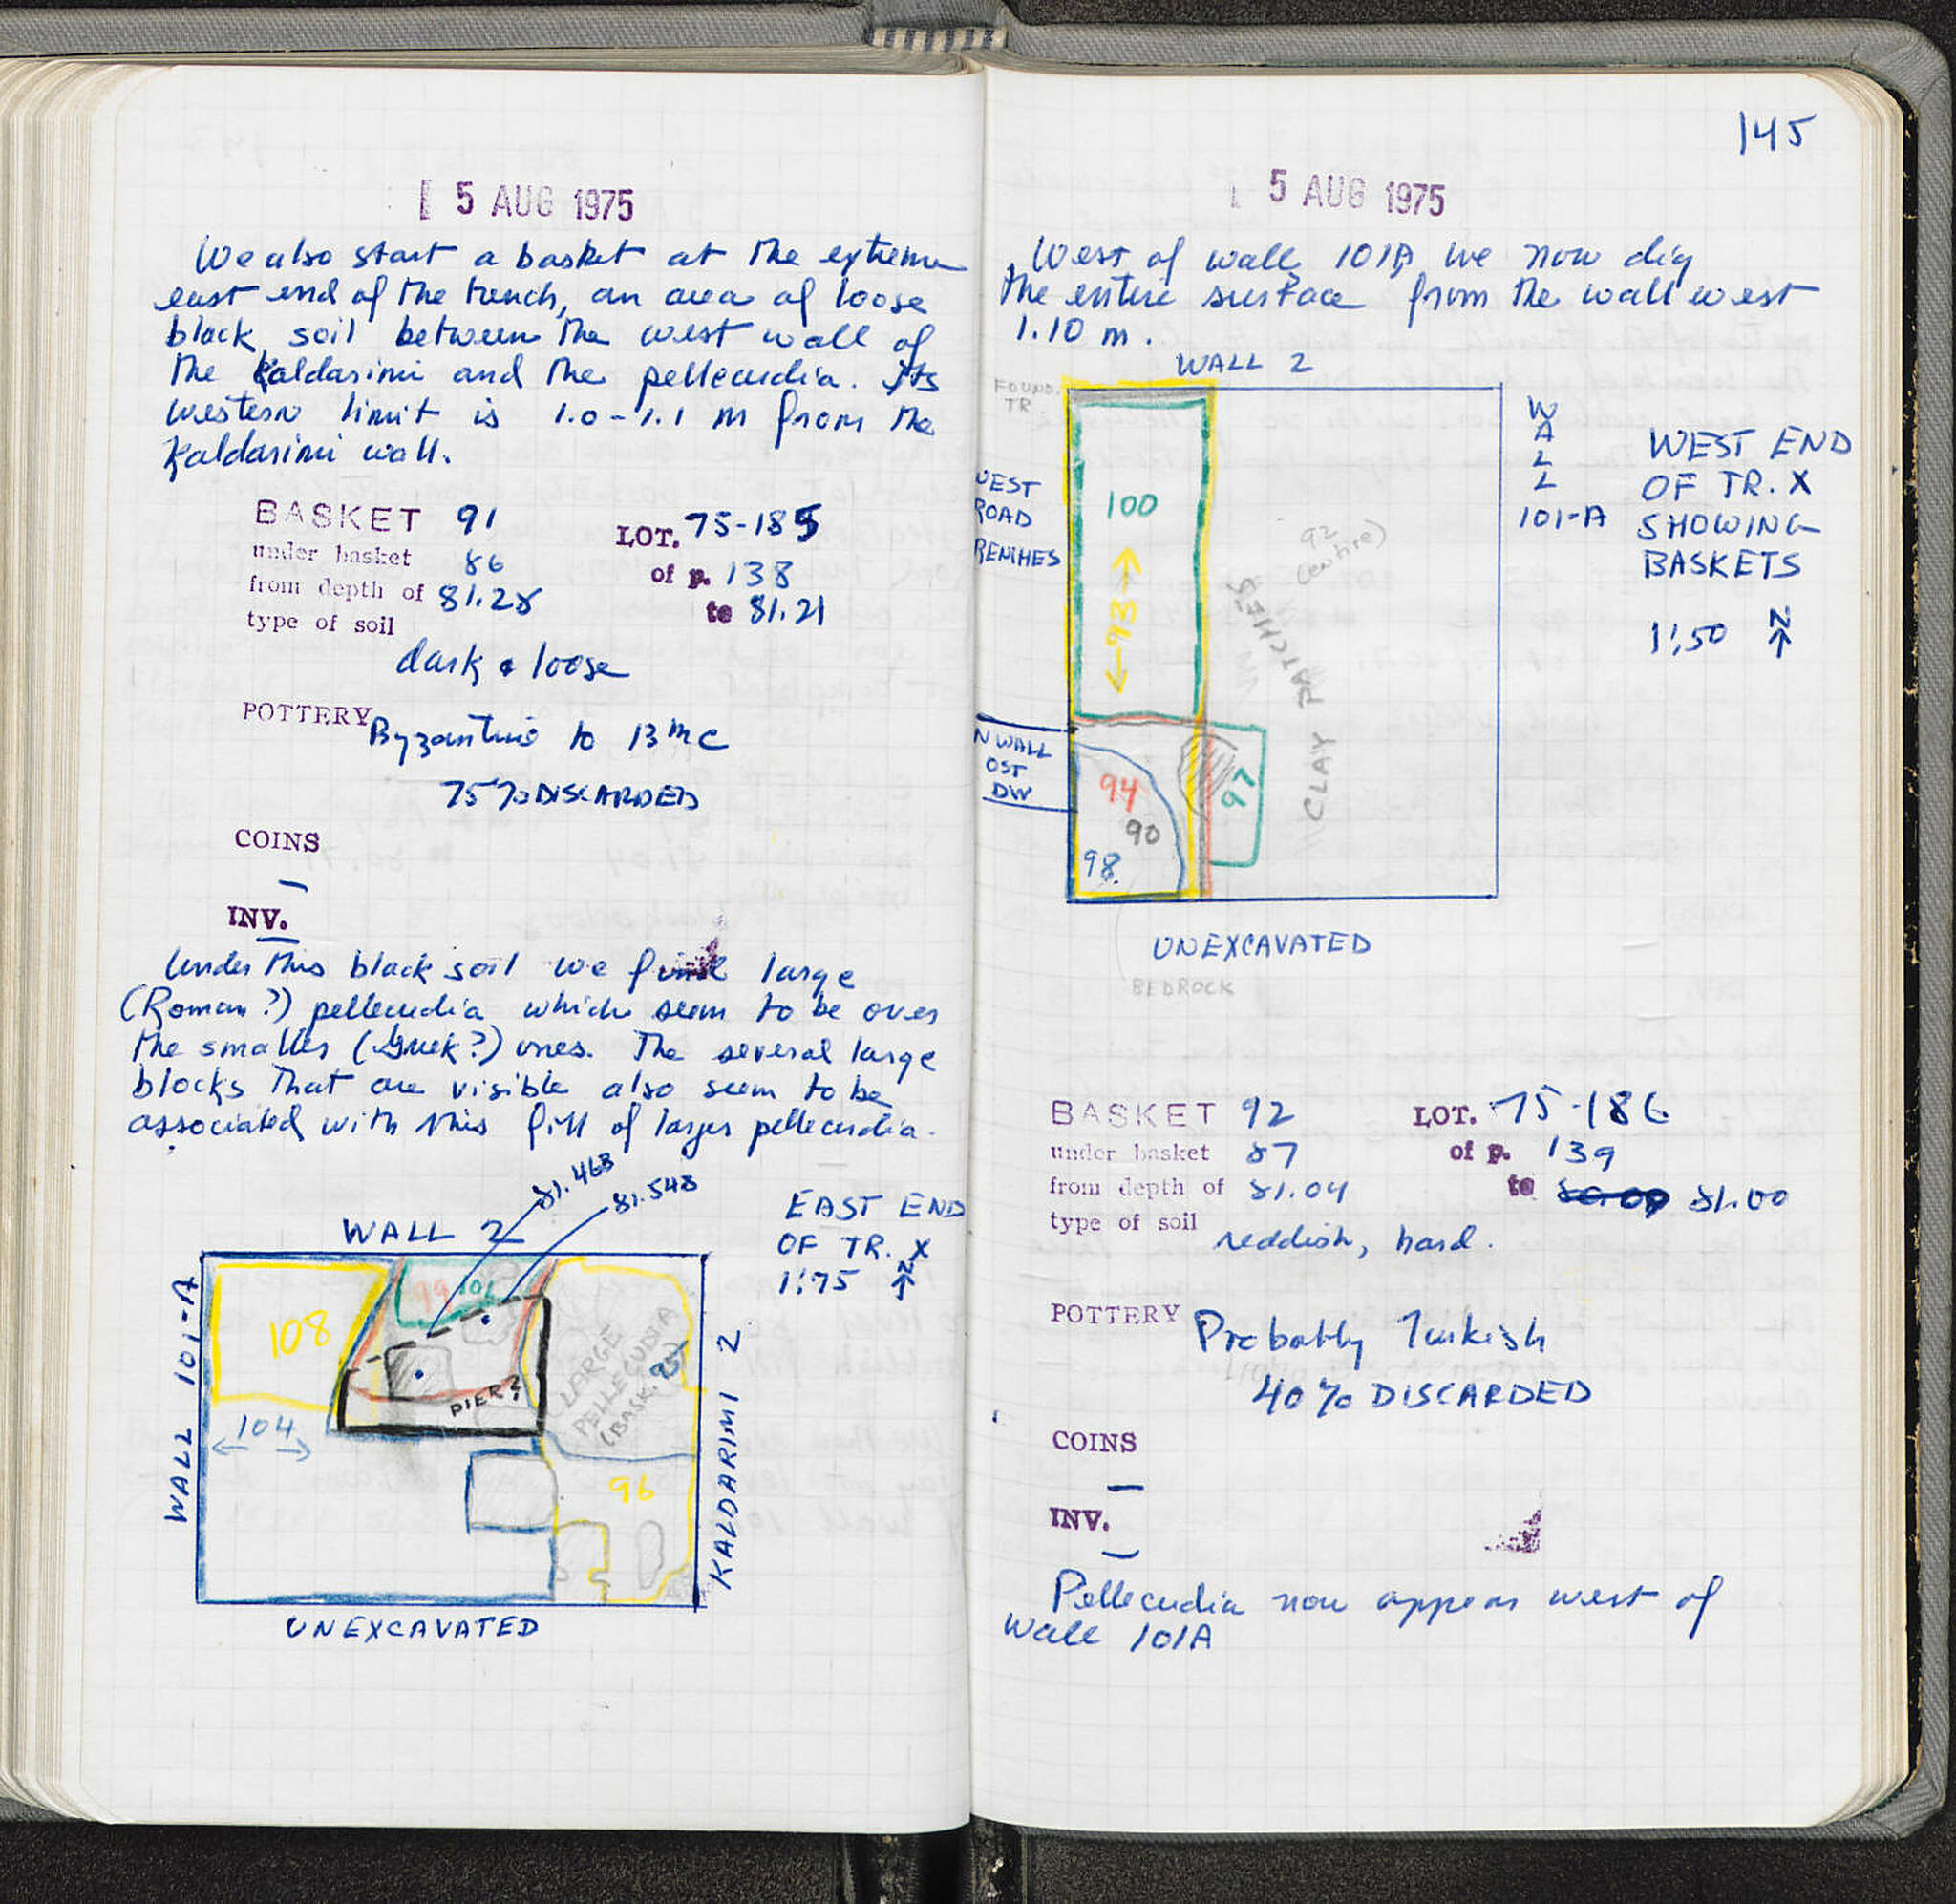 5 AUG 1975
We also start a basket at the extreme
east end of the trench, an area of loose
black soil between the west wall of
the Kaldarimi and the pellecudia. Its
western limit is 1.0-1.1 m from the
Kaldarimi wall.
BASKET 91 LOT. 75-185
under basket 86 of p. 138
from depth of 81.28 to 81.21
type of soil
dark & loose
POTTERY Byzantine to 13th c
75% DISCARDED
COINS
—
INV.
—
Under this black soil we find large
(Roman?) pellecudia which seem to be over
the smaller (Greek?) ones. The several large
blocks that are visible also seem to be
associated with this fill of larger pellecudia.
81.463
81.548
WALL 2
EAST END
OF TR. X
1:75 N
WALL 101-A
108
99
106
104
PIER?
LARGE
PELLECUDIA
(BASK.
95)
96
KALDARIMI 2
UNEXCAVATED
145
5 AUG 1975
West of wall 101A we now dig
the entire surface from the wall west
1.10 m.
WALL 2
FOUND.
TR.
WEST
ROAD
100
92
(entire)
93
CLAY PATCHES
N WALL
94
90
98
97
WALL
101-A
WEST END
OF TR. X
SHOWING
BASKETS
1:50 N
UNEXCAVATED
BEDROCK
BASKET 92 LOT. 75-186
under basket 87 of p. 139
from depth of 81.04 to 81.00
type of soil reddish, hard.
POTTERY Probably Turkish
40% DISCARDED
COINS
—
INV.
—
Pellecudia now appear west of
wall 101A